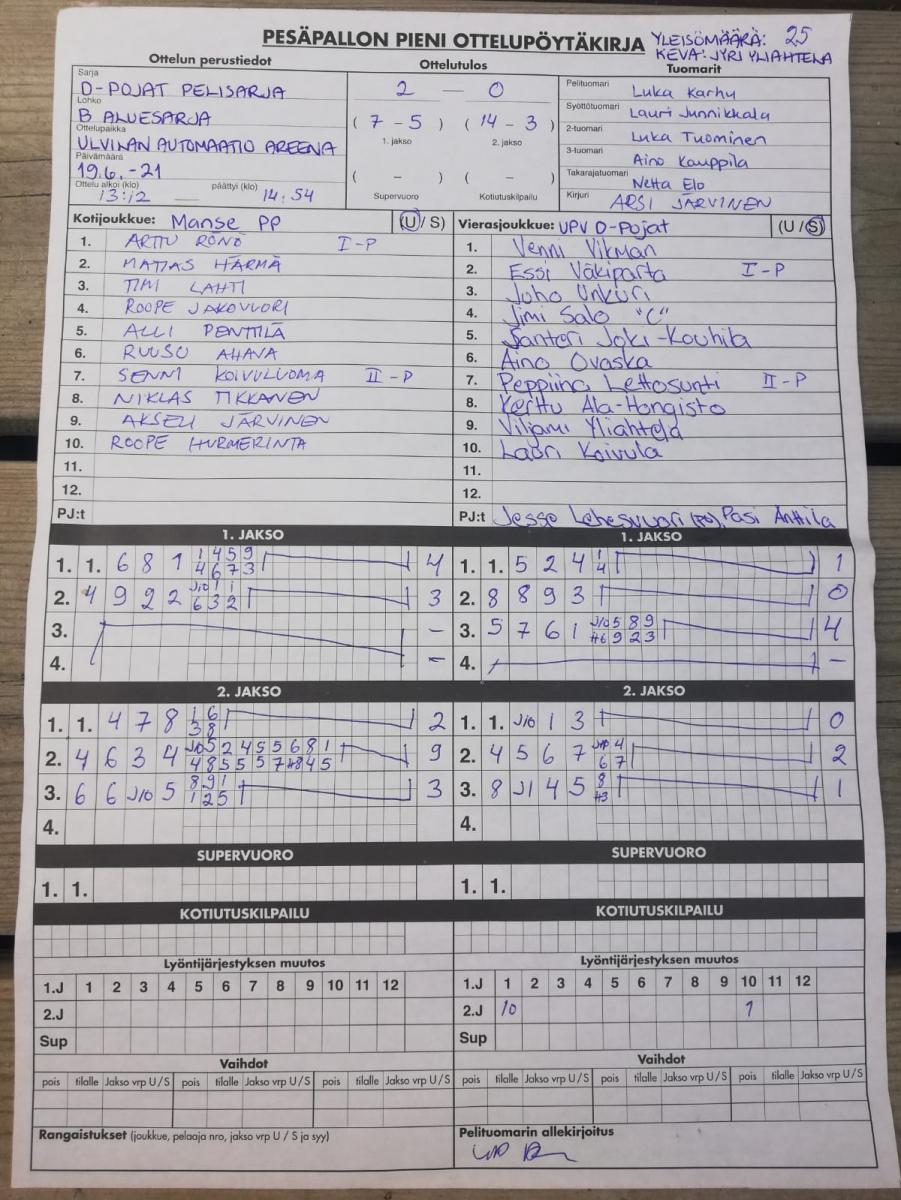 PESÄPALLON PIENI OTTELUPÖYTÄKIRJA
YLEISÖMÄÄRÄ: 25
KEVA: JYRI YLIAHTELA
Ottelun perustiedot
Sarja
D-POJAT PELISARJA
Lohko
B ALUESARJA
Ottelupaikka
ULVINAN AUTOMAATIO AREENA
Päivämäärä
19.6.-21
Ottelu alkoi (klo) päättyi (klo)
13:12 — 14:54
Ottelutulos
2 — 0
( 7 - 5 ) ( 14 - 3 )
1. jakso 2. jakso
( - ) ( - )
Supervuoro Kotiutuskilpailu
Tuomarit
Pelituomari Luka Karhu
Syöttötuomari Lauri Junnikkala
2-tuomari Luka Tuominen
3-tuomari Aino Kauppila
Takarajatuomari Netta Elo
Kirjuri ARSI JÄRVINEN
Kotijoukkue: Manse PP (U/S)
1. ARTTU RÖNÖ I-P
2. MATIAS HÄRMÄ
3. TIMI LAHTI
4. ROOPE JAKOVUORI
5. ALLI PENTTILÄ
6. RUUSU AHAVA
7. SENNI KOIVULUOMA II-P
8. NIKLAS TIKKANEN
9. AKSELI JÄRVINEN
10. ROOPE HURMERINTA
11.
12.
PJ:t
Vierasjoukkue: UPV D-Pojat (U/S)
1. Venni Vikman
2. Essi Väkiparta I-P
3. Juho Unkuri
4. Jimi Salo "C"
5. Santeri Joki-Kouhila
6. Aino Ovaska
7. Peppiina Lettosunti II-P
8. Kerttu Ala-Hongisto
9. Viljami Yliahtela
10. Lauri Koivula
11.
12.
PJ:t Jesse Lehesvuori (PJ), Pasi Anttila
1. JAKSO
1. 1. 6 8 1 1 4 5 9 4
4 6 7 3
2. 4 9 2 2 J10 1 1 3
6 3 2
3. -
4. -
1. JAKSO
1. 1. 5 2 4 1 1
4
2. 8 8 9 3 0
3. 5 7 6 1 J10 5 8 9 4
H6 9 2 3
4. -
2. JAKSO
1. 1. 4 7 8 1 6 2
3 8
2. 4 6 3 4 J10 5 2 4 5 5 6 8 1 9
4 8 5 5 5 7 H8 4 5
3. 6 6 J10 5 8 9 1 3
1 2 5
4.
2. JAKSO
1. 1. J10 1 3 0
2. 4 5 6 7 J10 4 2
6 7
3. 8 J1 4 5 8 1
H3
4.
SUPERVUORO
1. 1.
SUPERVUORO
1. 1.
KOTIUTUSKILPAILU
KOTIUTUSKILPAILU
Lyöntijärjestyksen muutos
1.J 1 2 3 4 5 6 7 8 9 10 11 12
2.J
Sup
Lyöntijärjestyksen muutos
1.J 1 2 3 4 5 6 7 8 9 10 11 12
2.J 10 1
Sup
Vaihdot
pois tilalle Jakso vrp U/S pois tilalle Jakso vrp U/S pois tilalle Jakso vrp U/S
Vaihdot
pois tilalle Jakso vrp U/S pois tilalle Jakso vrp U/S pois tilalle Jakso vrp U/S
Rangaistukset (joukkue, pelaaja nro, jakso vrp U / S ja syy)
Pelituomarin allekirjoitus